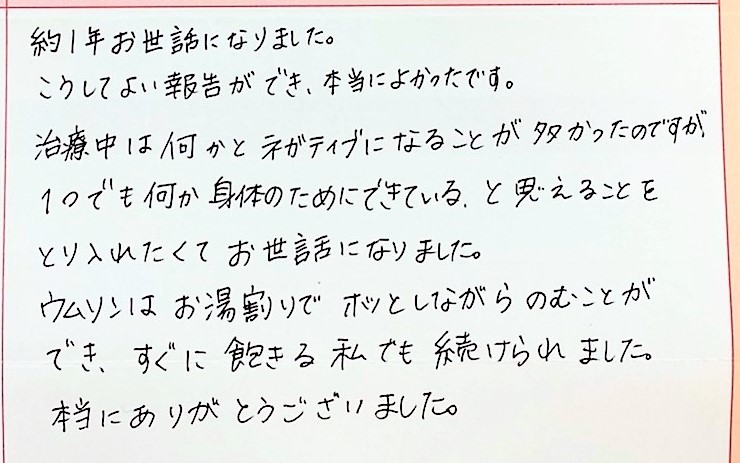 約1年お世話になりました。
こうしてよい報告ができ、本当によかったです。
治療中は何かとネガティブになることが多かったのですが、
1つでも何か身体のためにできている、と思えることを
とり入れたくてお世話になりました。
ウムリンはお湯割りでホッとしながらのむことが
でき、すぐに飽きる私でも続けられました。
本当にありがとうございました。